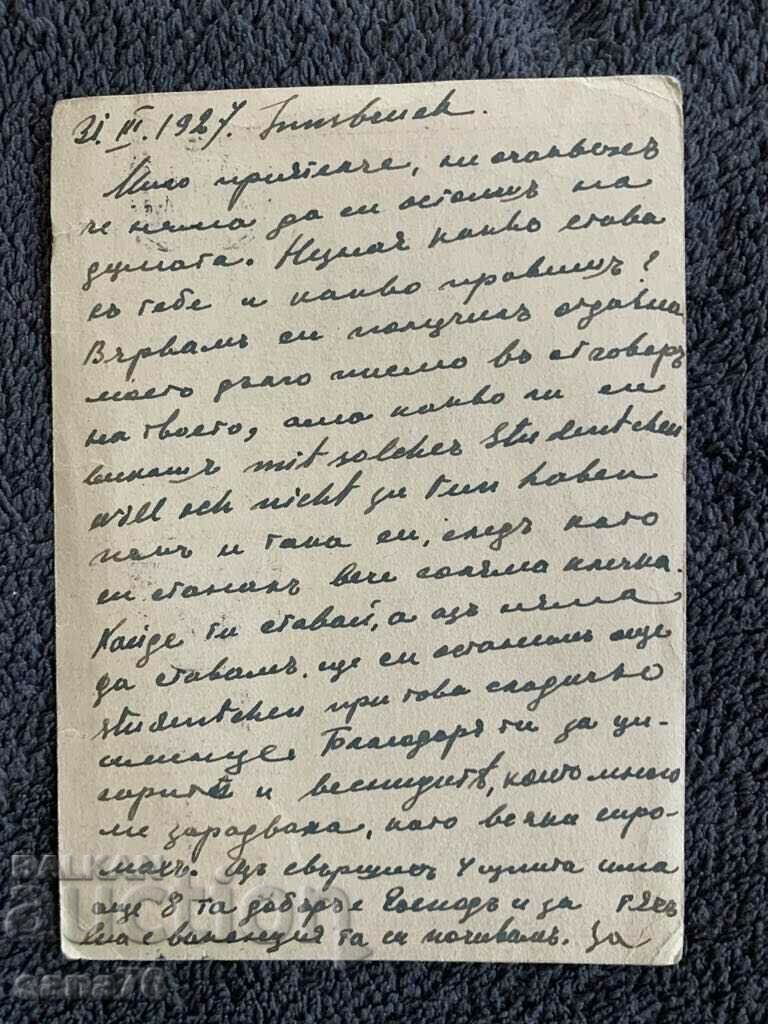 31. III. 1927. Innsbruck.
Мило приятелче, ни очаквахъ
че няма да си остоишъ на
думата. Незная какво става
съ тебе и какво правишъ?
Вървамъ си получилъ отдавна
моето дълго писмо въ отговоръ
на твоето, ама какво ли си
викашъ mit solchen Studentchen
will ich nicht zu tun haben
нали и така си, следъ като
си станалъ вече голяма клечка.
Хайде ти ставай, а азъ няма
да ставамъ, ще си останемъ още
studentchen при това сладичко
именце. Благодаря ти за ци-
гарите и весницитѣ, които много
ме зарадваха, като всѣки сиро-
махъ. Азъ свършихъ 4 изпита има
още 8 та добъръ е Господъ и за тяхъ
сега е ваканция та си почивамъ. За
BALKAN
auction
cena76